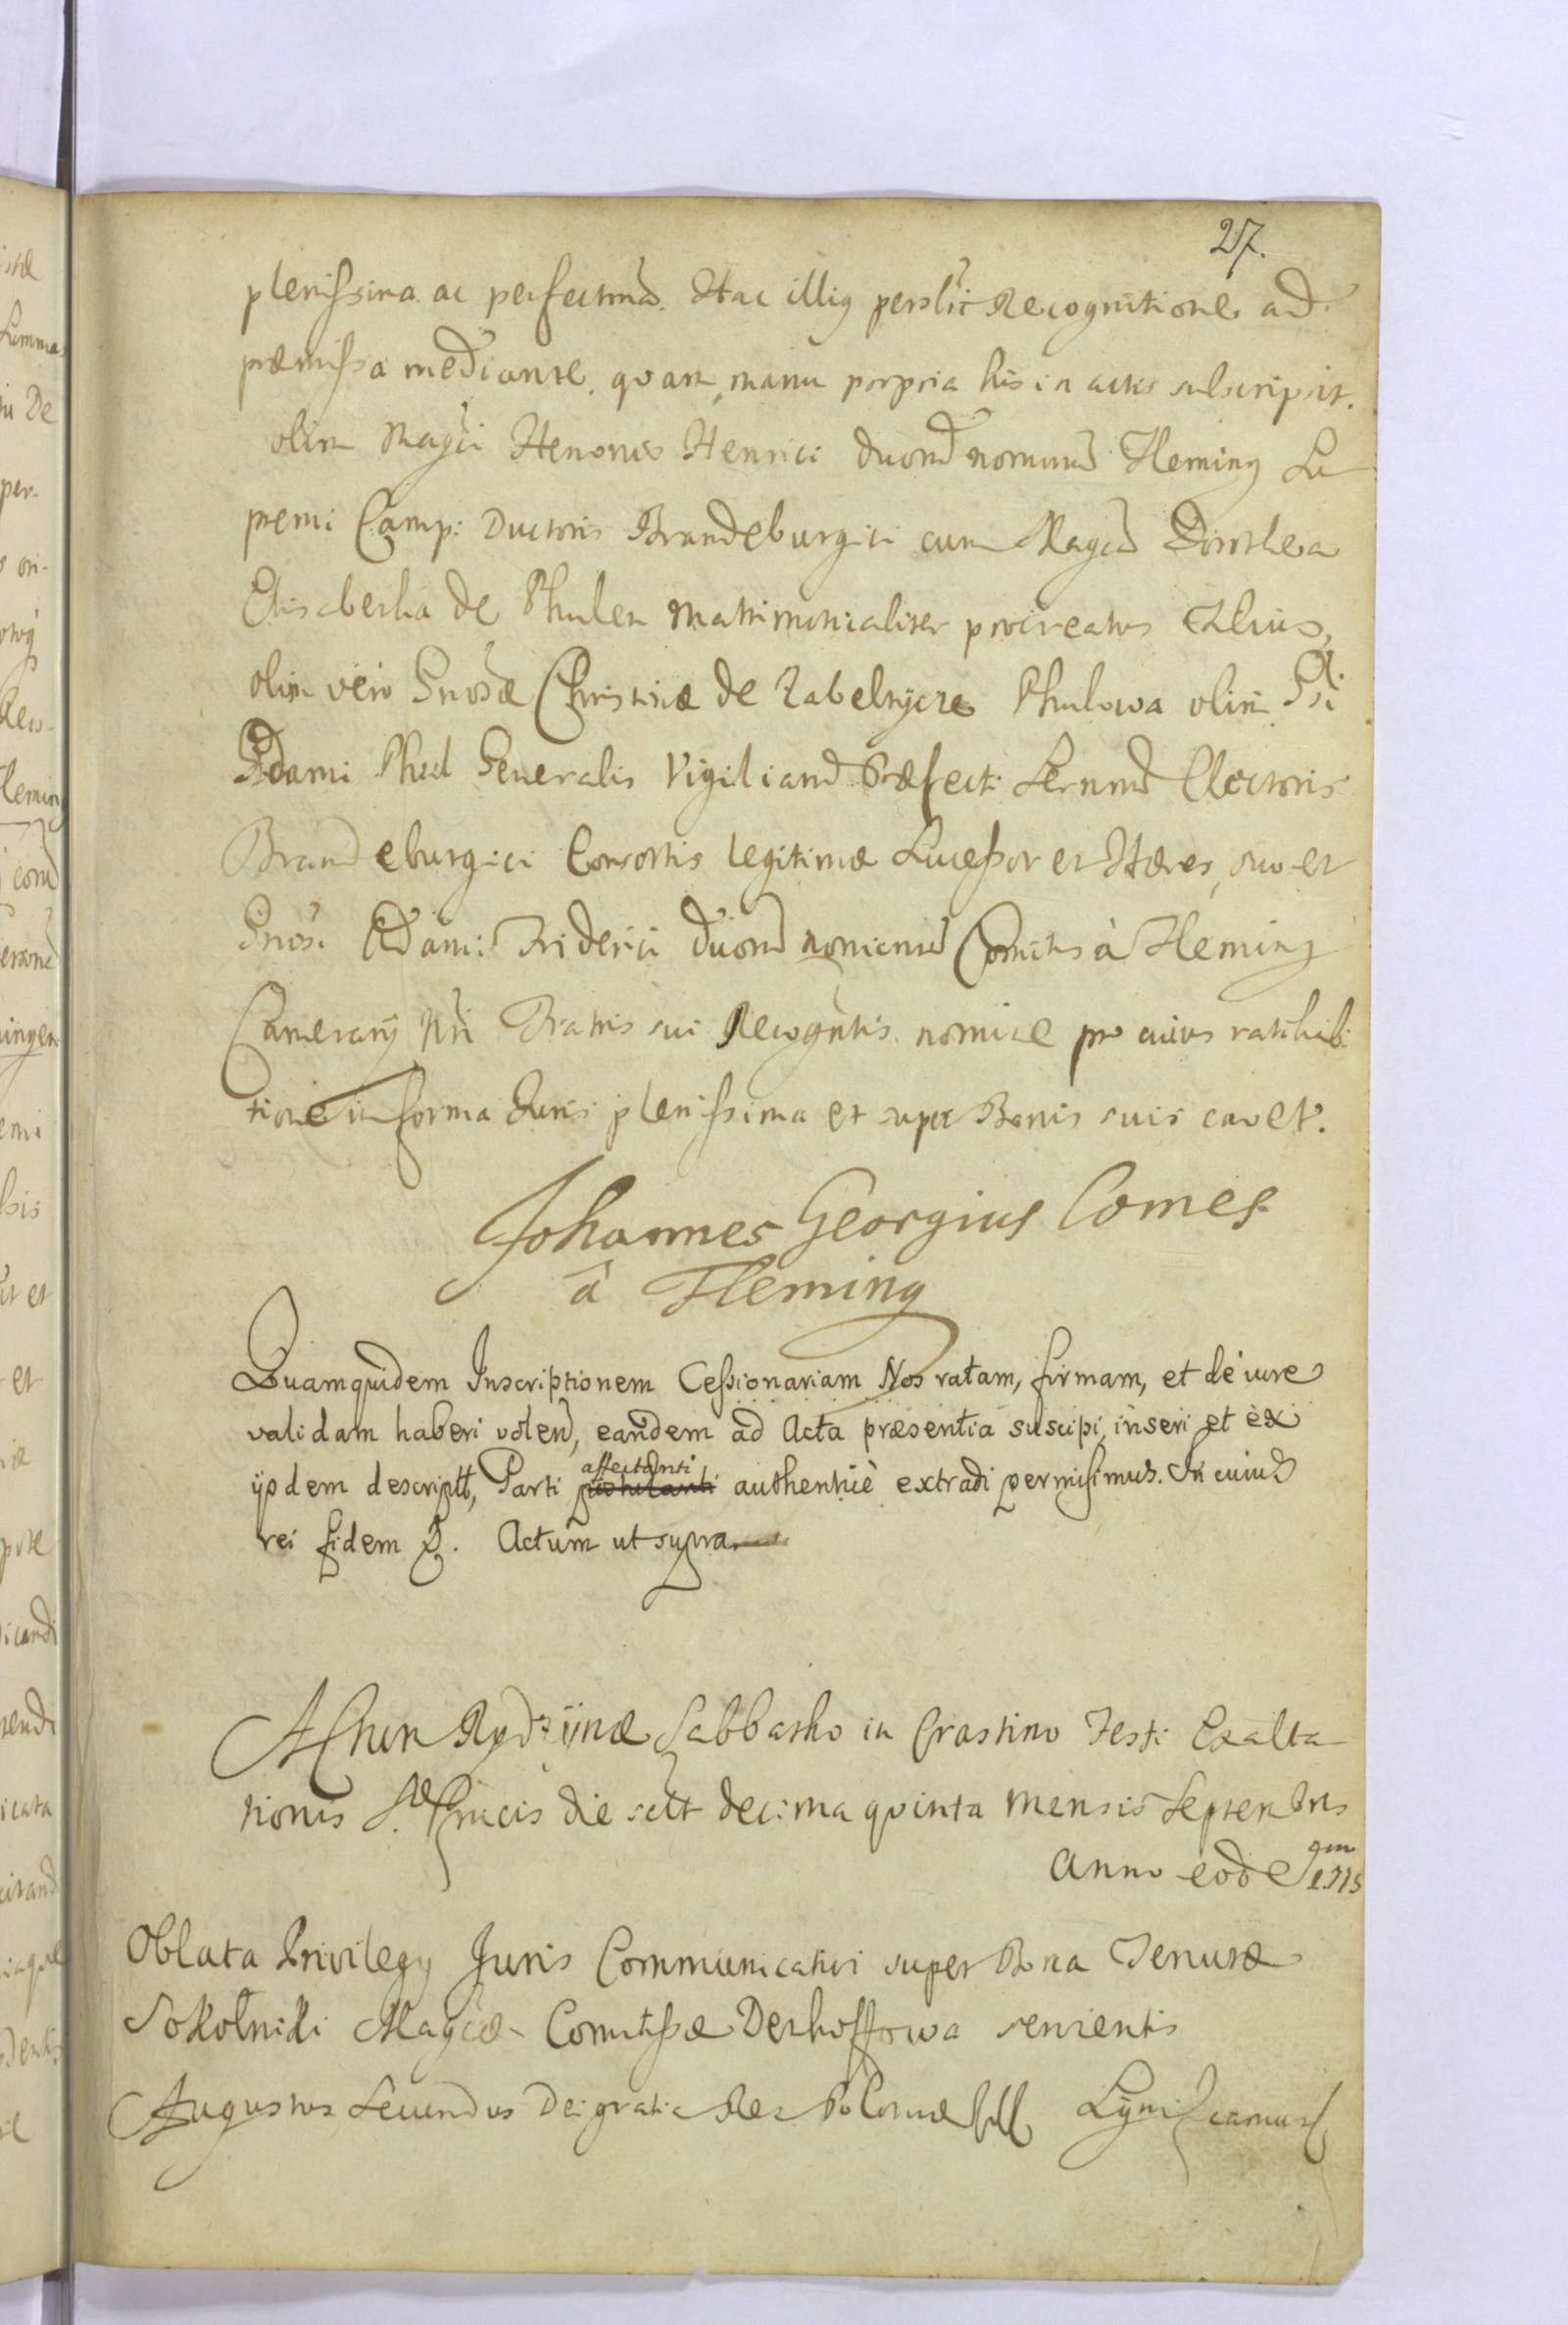 27.
plenissima ac perfectima. Hac illius pers̃lr Recognitione ad
præmissa mediante, quam manu propria his in actis subscripsit.
olim Mag̃ci Henonis Henrici duord nominud Fleming Su
premi Camp: Ductoris Brandeburgici cum Magcã Dorothea
Elisabetha de Phulen Matrimonialiter procreatus Filius,
olim vero Gnosæ Christinæ de Zabelnycze Phulowa olim Gsi
Adami Phul Generalis Vigiliand Præfecti Sernmi Electoris
Brandeburgici Consortis legitimæ Successor et Hæres, suo et
Gnosi Adami Friderici duord nominud Comitis à Fleming
Camerarij Nri Fratris sui Recogñtis nomine pro cuius ratihabi
tione in forma Juris plenissima et super Bonis suis cavet.
Johannes Georgius Comes
â Fleming
Quamquidem Inscriptionem Cessionariam Nos ratam, firmam, et de iure
validam haberi volend, eandem ad Acta præsentia suscipi, inseri et ex
ijsdem descriptt, Parti affectanti authenticè extradi permisimus. In cuius
rei fidem &. Actum ut supra.
Actum Rydzijnæ Sabbatho in Crastino Festi Exalta
tionis S. Crucis die sclt decima quinta Mensis Septembris
Anno eode qm
Oblata Privilegy Juris Communicativi super Bona Tenutæ
Sokolniki Magcæ Comitissæ Denhoffowa servientis
Augustus Secundus Dei gratia Rex Poloniæ Sygnificamus